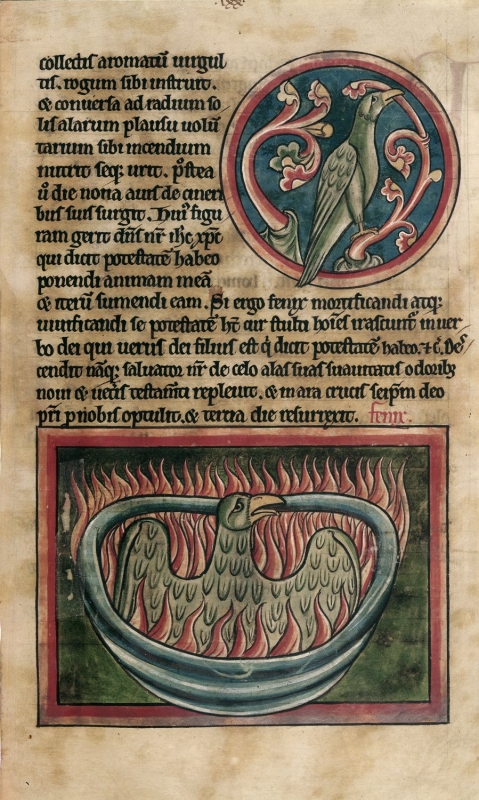 collectis aromatū uirgul
tis. rogum sibi instruit.
& conuersa ad radium so
lis alarum plausu uolū
tarium sibi incendium
nutrit seq; urit. p̄stea
ū die nona auis de cineri
bus suis surgit. Hui᷒ figu
ram gerit dn̄s nr̄ ihc xpc
qui dicit potestatē habeo
ponendi animam meā
& iterū sumendi eam. Si ergo fenix mortificandi atq;
uiuificandi se potestatē ht̄ cur stulti hoīes irascunt᷒ in uer
bo dei qui uerus dei filius est q̇ dicit potestatē habeo. &c̄. Des
cendit nāq; saluator nr̄ de celo alas suas suauitatis odorib;
noui & ueteris testam̄ti repleuit. & in ara crucis seip̄m deo
pr̄i p nobis optulit. & tertia die resurrexit. fenix.